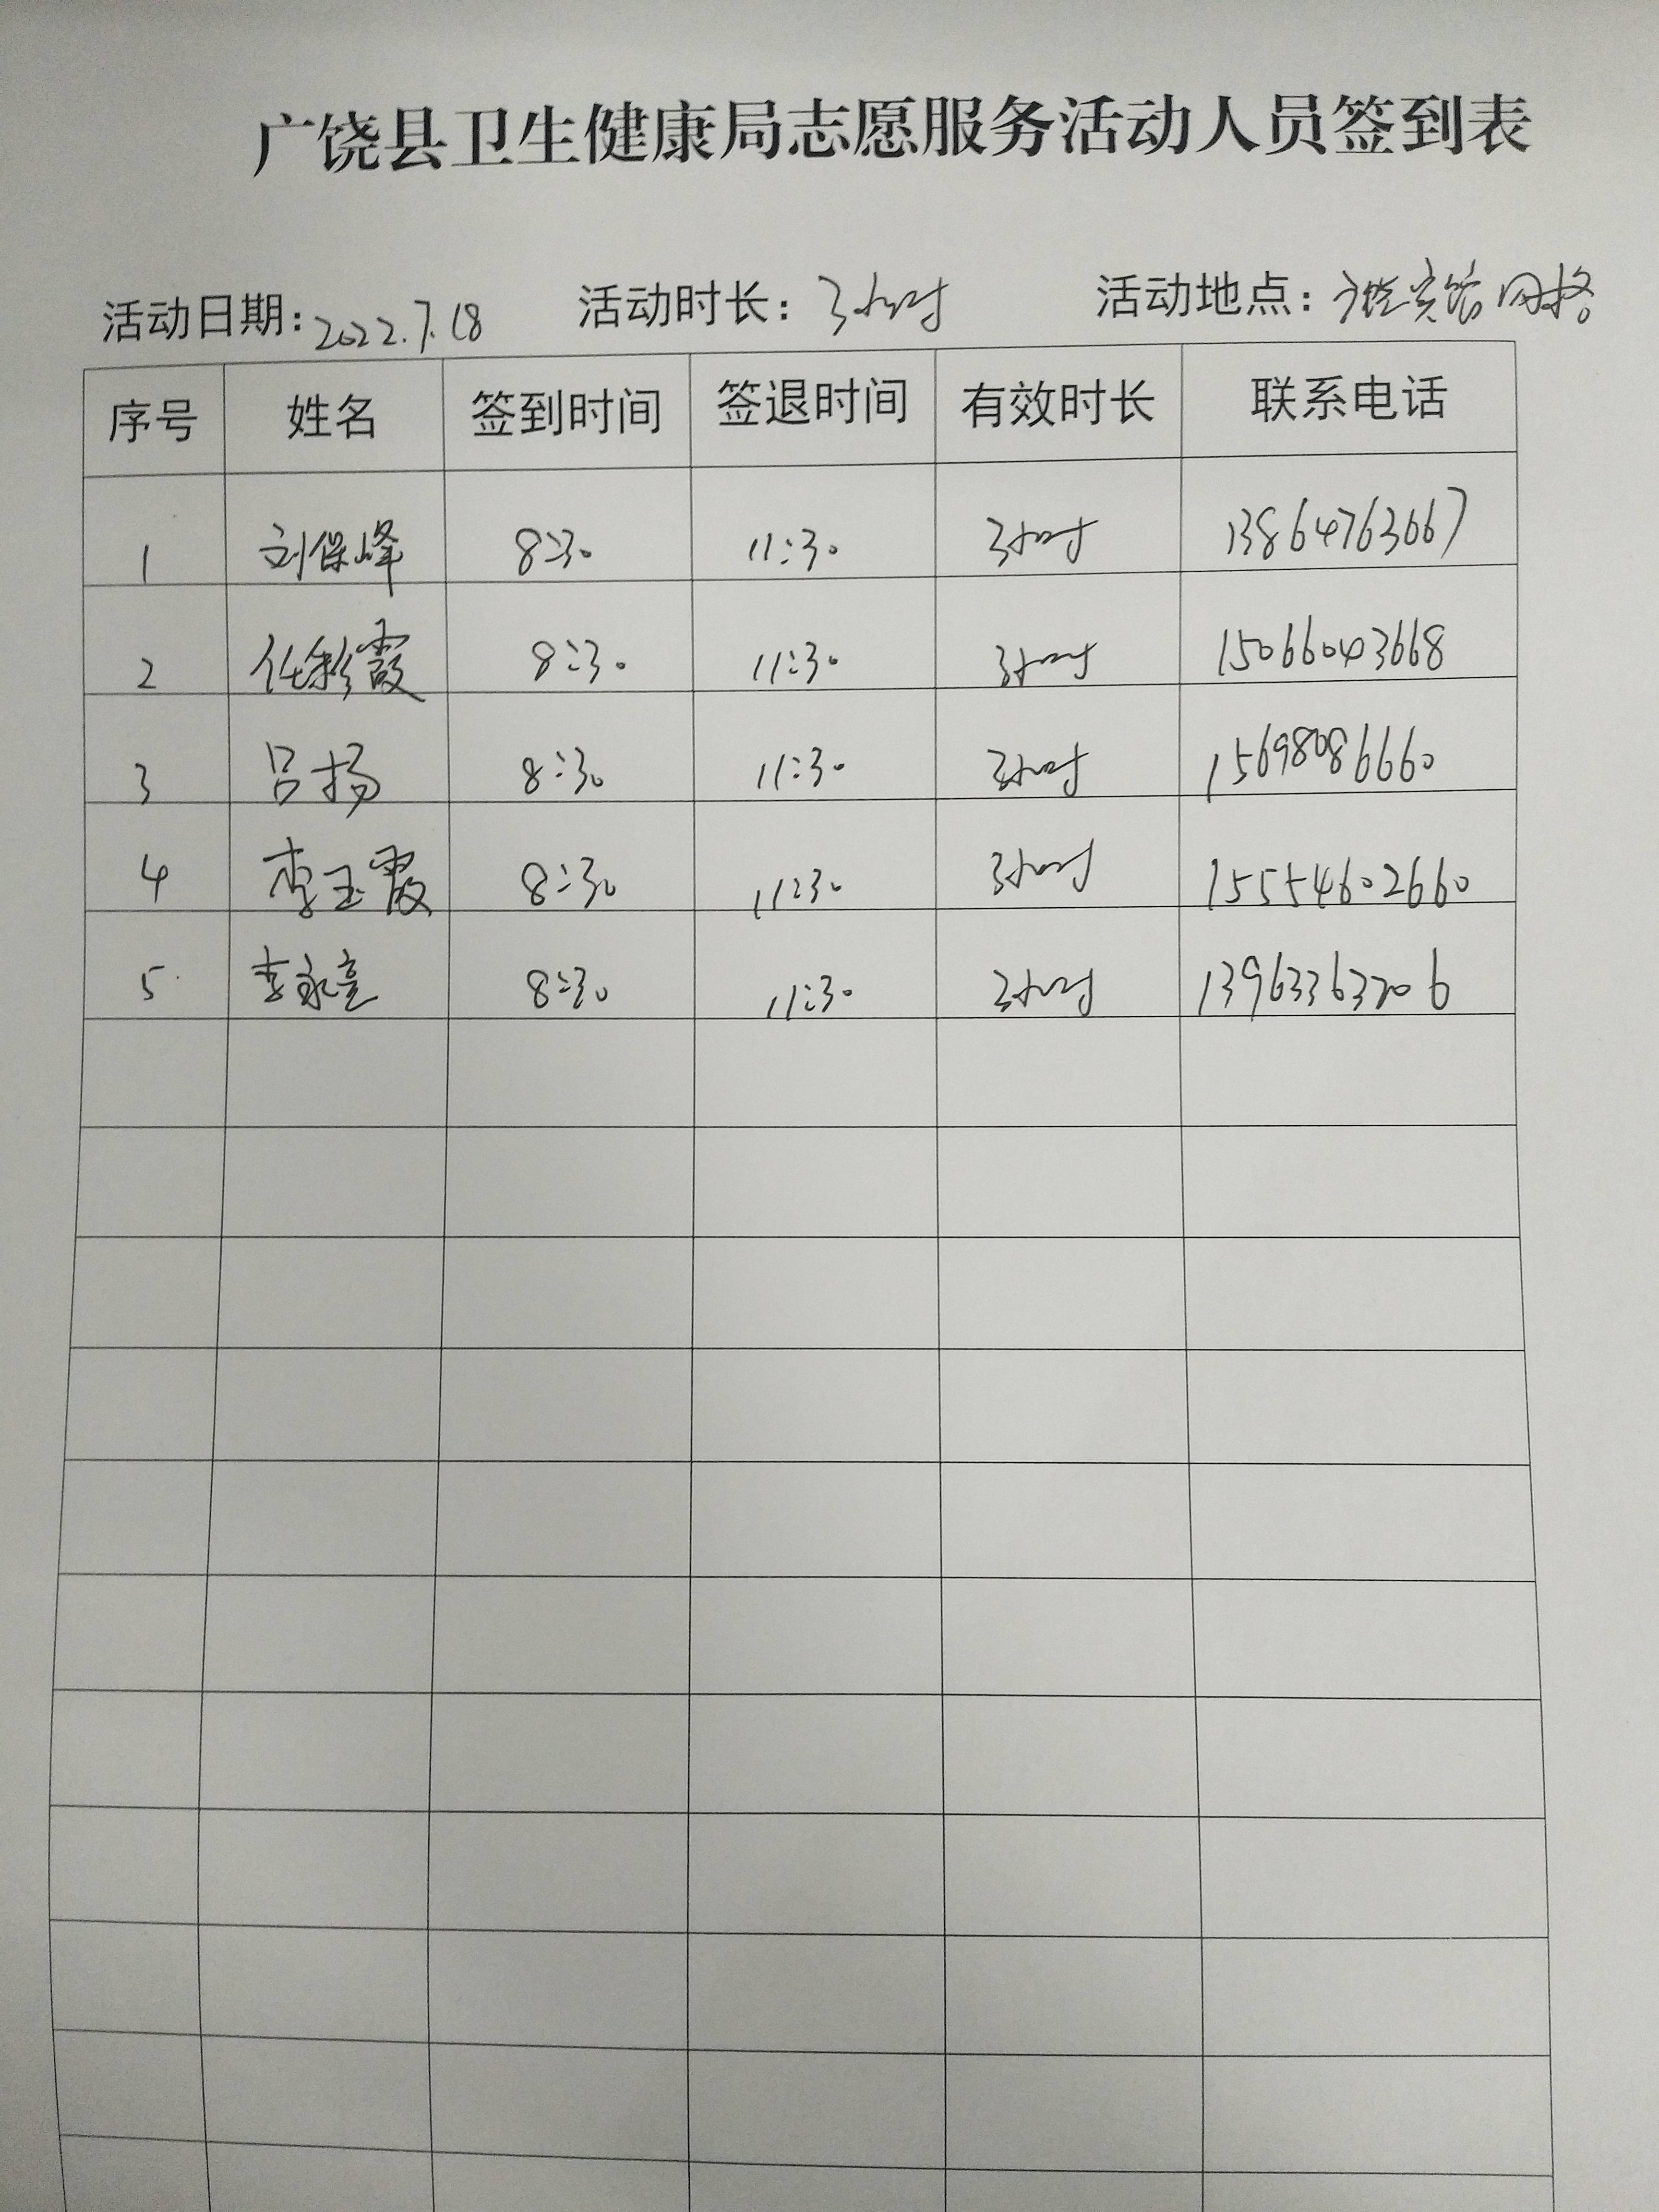 广饶县卫生健康局志愿服务活动人员签到表
活动日期：2022.7.18 活动时长：3小时 活动地点：广饶宾馆网格
序号 姓名 签到时间 签退时间 有效时长 联系电话
1 刘保峰 8:30 11:30 3小时 13864763667
2 任彩霞 8:30 11:30 3小时 15066043668
3 吕扬 8:30 11:30 3小时 15698086660
4 李玉霞 8:30 11:30 3小时 15554602660
5 李永亮 8:30 11:30 3小时 13963363206